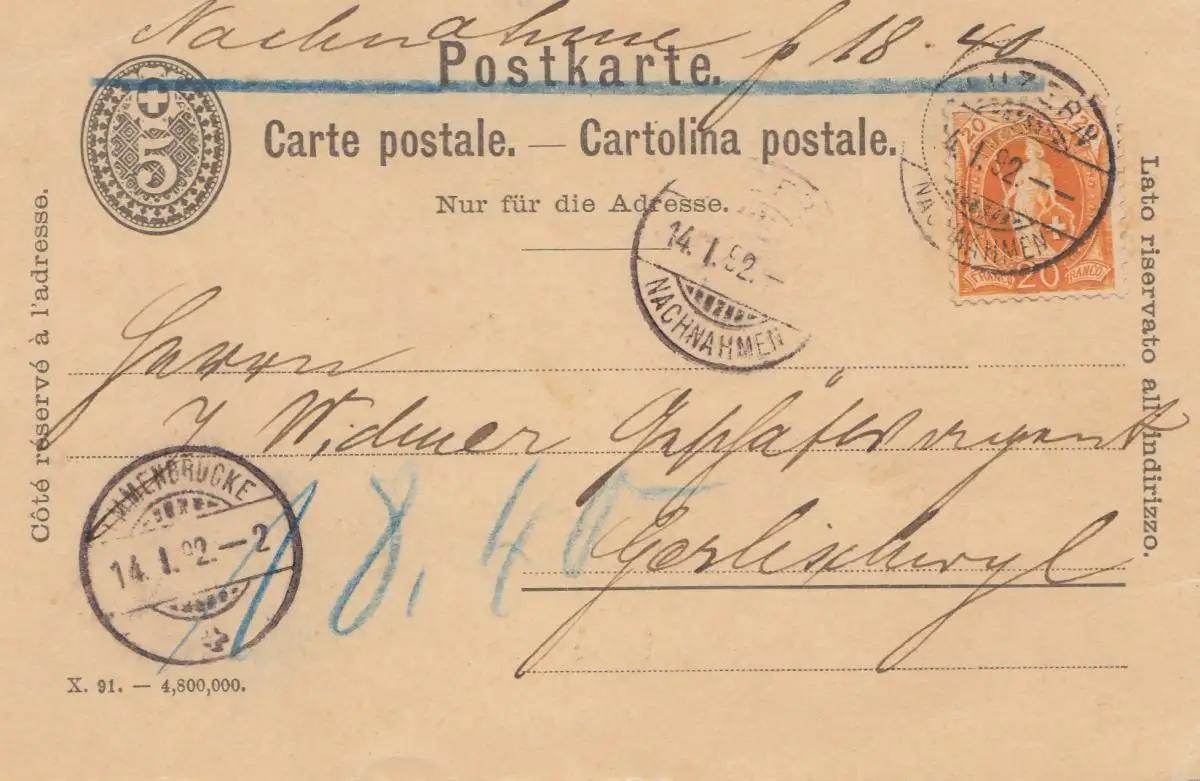 Nachnahme f 18.40
Postkarte.
5
Carte postale. — Cartolina postale.
Nur für die Adresse.
Côté réservé à l'adresse.
Lato riservato all'indirizzo.
LUZERN
14.I.92.—
NACHNAHMEN
20
FRANCO 20 FRANCO
14.I.92.—
NACHNAHMEN
Herrn
J Widmer Geschäftsagent
Gerlischwyl
18.40
EMMENBRÜCKE
14.I.92.—2
X. 91. — 4,800,000.